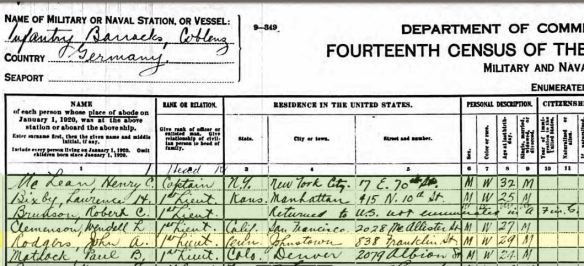 NAME OF MILITARY OR NAVAL STATION, OR VESSEL:
Infantry Barracks, Coblenz
COUNTRY Germany.
SEAPORT
9-349
DEPARTMENT OF COMM
FOURTEENTH CENSUS OF THE
MILITARY AND NAVA
ENUMERATED
NAME
of each person whose place of abode on
January 1, 1920, was at the above
station or aboard the above ship.
Enter surname first, then the given name and middle
initial, if any.
Include every person living on January 1, 1920. Omit
children born since January 1, 1920.
RANK OR RELATION.
Give rank of officer or
enlisted man. Give
relationship of civil-
ian person to head of
family.
RESIDENCE IN THE UNITED STATES.
State. City or town. Street and number.
PERSONAL DESCRIPTION.
Sex. Color or race. Age at last birth-
day. Single, married,
CITIZENSH
1 2 3 4 5 6 7 8 9 10 11
Head
McLean, Henry C. Captain N.Y. New York City. 7 E. 70th St. M W 32 M
Bixby, Lawrence H. 1st Lieut. Kans. Manhattan 415 N. 10th St. M W 25 M
Robert C. 1st Lieut. Returned to U.S. not enumerated in
Clemenson, Wendell L. 1st Lieut. Calif. San Francisco. 2028 McAllister St. M W 27 M
Rodgers, John A. 1st Lieut. Penn. Johnstown 838 Franklin St. M W 29 M
Matlock, Paul B. 1st Lieut. Colo. Denver 2079 Albion St. M W